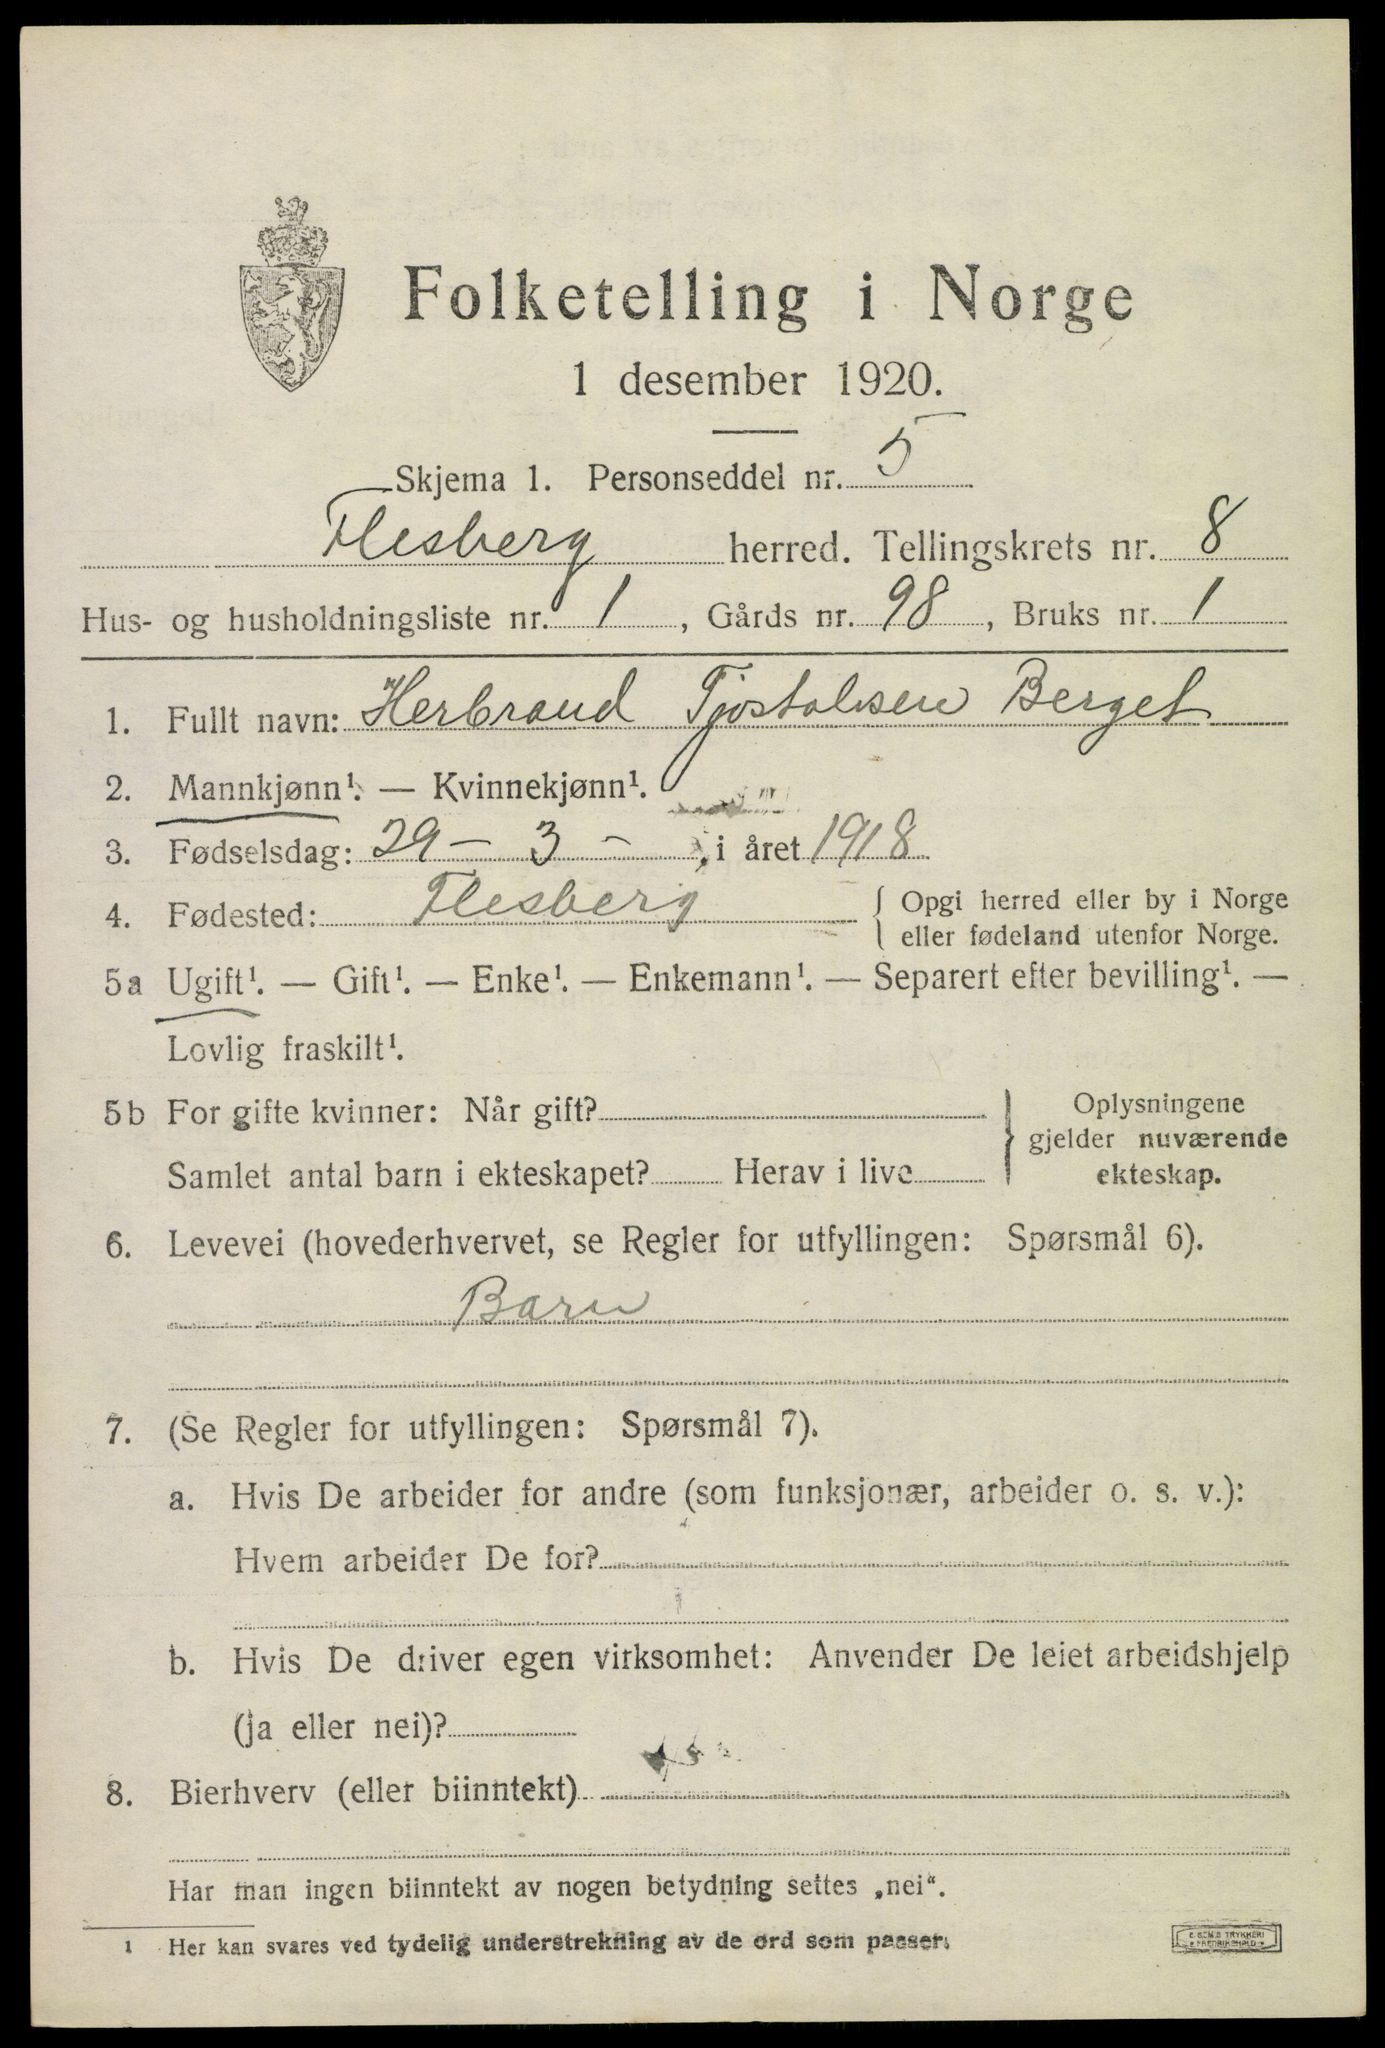 Folketelling i Norge
1 desember 1920.
Skjema 1. Personseddel nr. 5
Flesberg herred. Tellingskrets nr. 8
Hus- og husholdningsliste nr. 1, Gårds nr. 98, Bruks nr. 1
1. Fullt navn: Herbrand Tjøstolvsen Berget
2. Mannkjønn¹. — Kvinnekjønn¹.
3. Fødselsdag: 29 - 3 - , i året 1918
4. Fødested: Flesberg { Opgi herred eller by i Norge
eller fødeland utenfor Norge.
5a Ugift¹. — Gift¹. — Enke¹. — Enkemann¹. — Separert efter bevilling¹. —
Lovlig fraskilt¹.
5b For gifte kvinner: Når gift? } Oplysningene
gjelder nuværende
Samlet antal barn i ekteskapet? Herav i live
ekteskap.
6. Levevei (hovederhvervet, se Regler for utfyllingen: Spørsmål 6).
Barn
7. (Se Regler for utfyllingen: Spørsmål 7).
a. Hvis De arbeider for andre (som funksjonær, arbeider o. s. v.):
Hvem arbeider De for?
b. Hvis De driver egen virksomhet: Anvender De leiet arbeidshjelp
(ja eller nei)?
8. Bierhverv (eller biinntekt)
Har man ingen biinntekt av nogen betydning settes „nei“.
1 Her kan svares ved tydelig understrekning av de ord som passer.
E. SEM'S TRYKKERI
FREDRIKSHALD